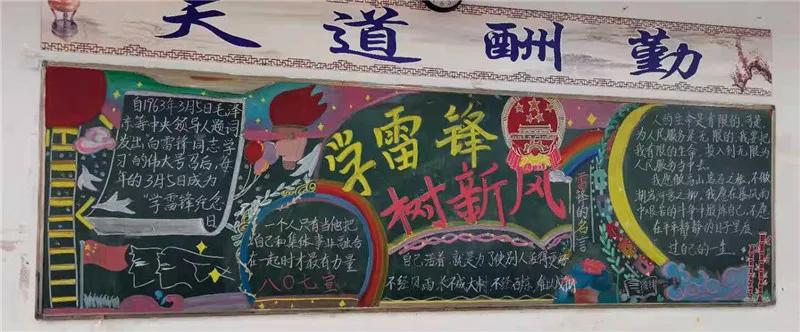 天道酬勤
自1963年3月5日毛泽
东等中央领导人题词
发出向雷锋同志学
习的伟大号召后,每
年的3月5日成为
“学雷锋纪念
日
一个人只有当他把
自己和集体事业融合
在一起时才最有力量
八〇七宣
学雷锋
树新风
自己活着,就是为了使别人
不经风雨,长不成大树,不经百炼,
雷锋的名言
人的生命是有限的,可是
为人民服务是无限的,我要把
我有限的生命,投入到无限为
人民服务当中去。
我愿做高山岩石之松,不做
湖岸河旁之柳,我愿在暴风雨
中艰苦的斗争中锻炼自己,不愿
在平平静静的日子里度
过自己的一生。